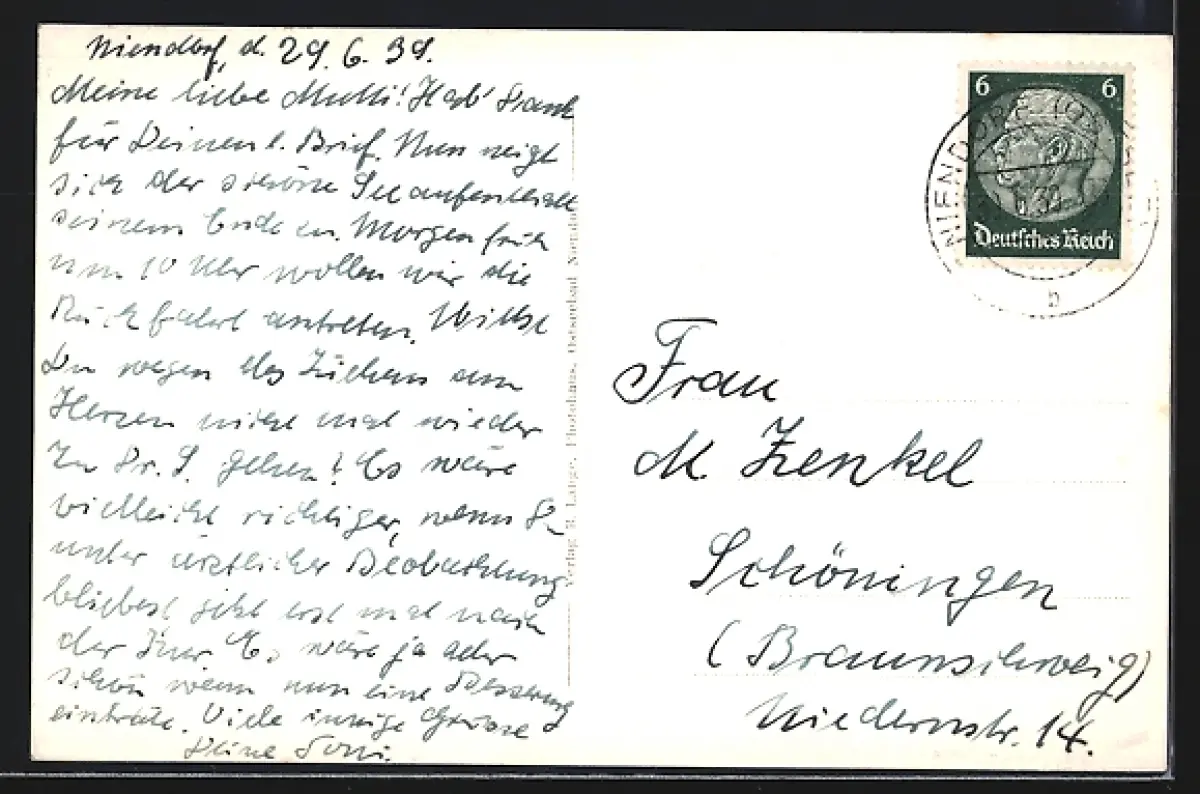 Niendorf, d. 29.6.39.
Meine liebe Mutti! Hab' Dank
für Deinen l. Brief. Nun neigt
sich der schöne Seeaufenthalt
seinem Ende zu. Morgen früh
um 10 Uhr wollen wir die
Rückfahrt antreten. Willst
Du wegen des Zuckens am
Herzen nicht mal wieder
zu Dr. S. gehen? Es wäre
vielleicht richtiger, wenn Du
unter ärztlicher Beobachtung
bliebest jetzt erst mal nach
der Kur. Es wäre ja aber
schön wenn nun eine Besserung
einträte. Viele innige Grüsse
Deine
Verlag: R. Lange, Photohaus, Ostseebad
6 6
Deutsches Reich
NIENDORF
b
Frau
M. Zenkel
Schöningen
(Braunschweig)
Niedernstr. 14.